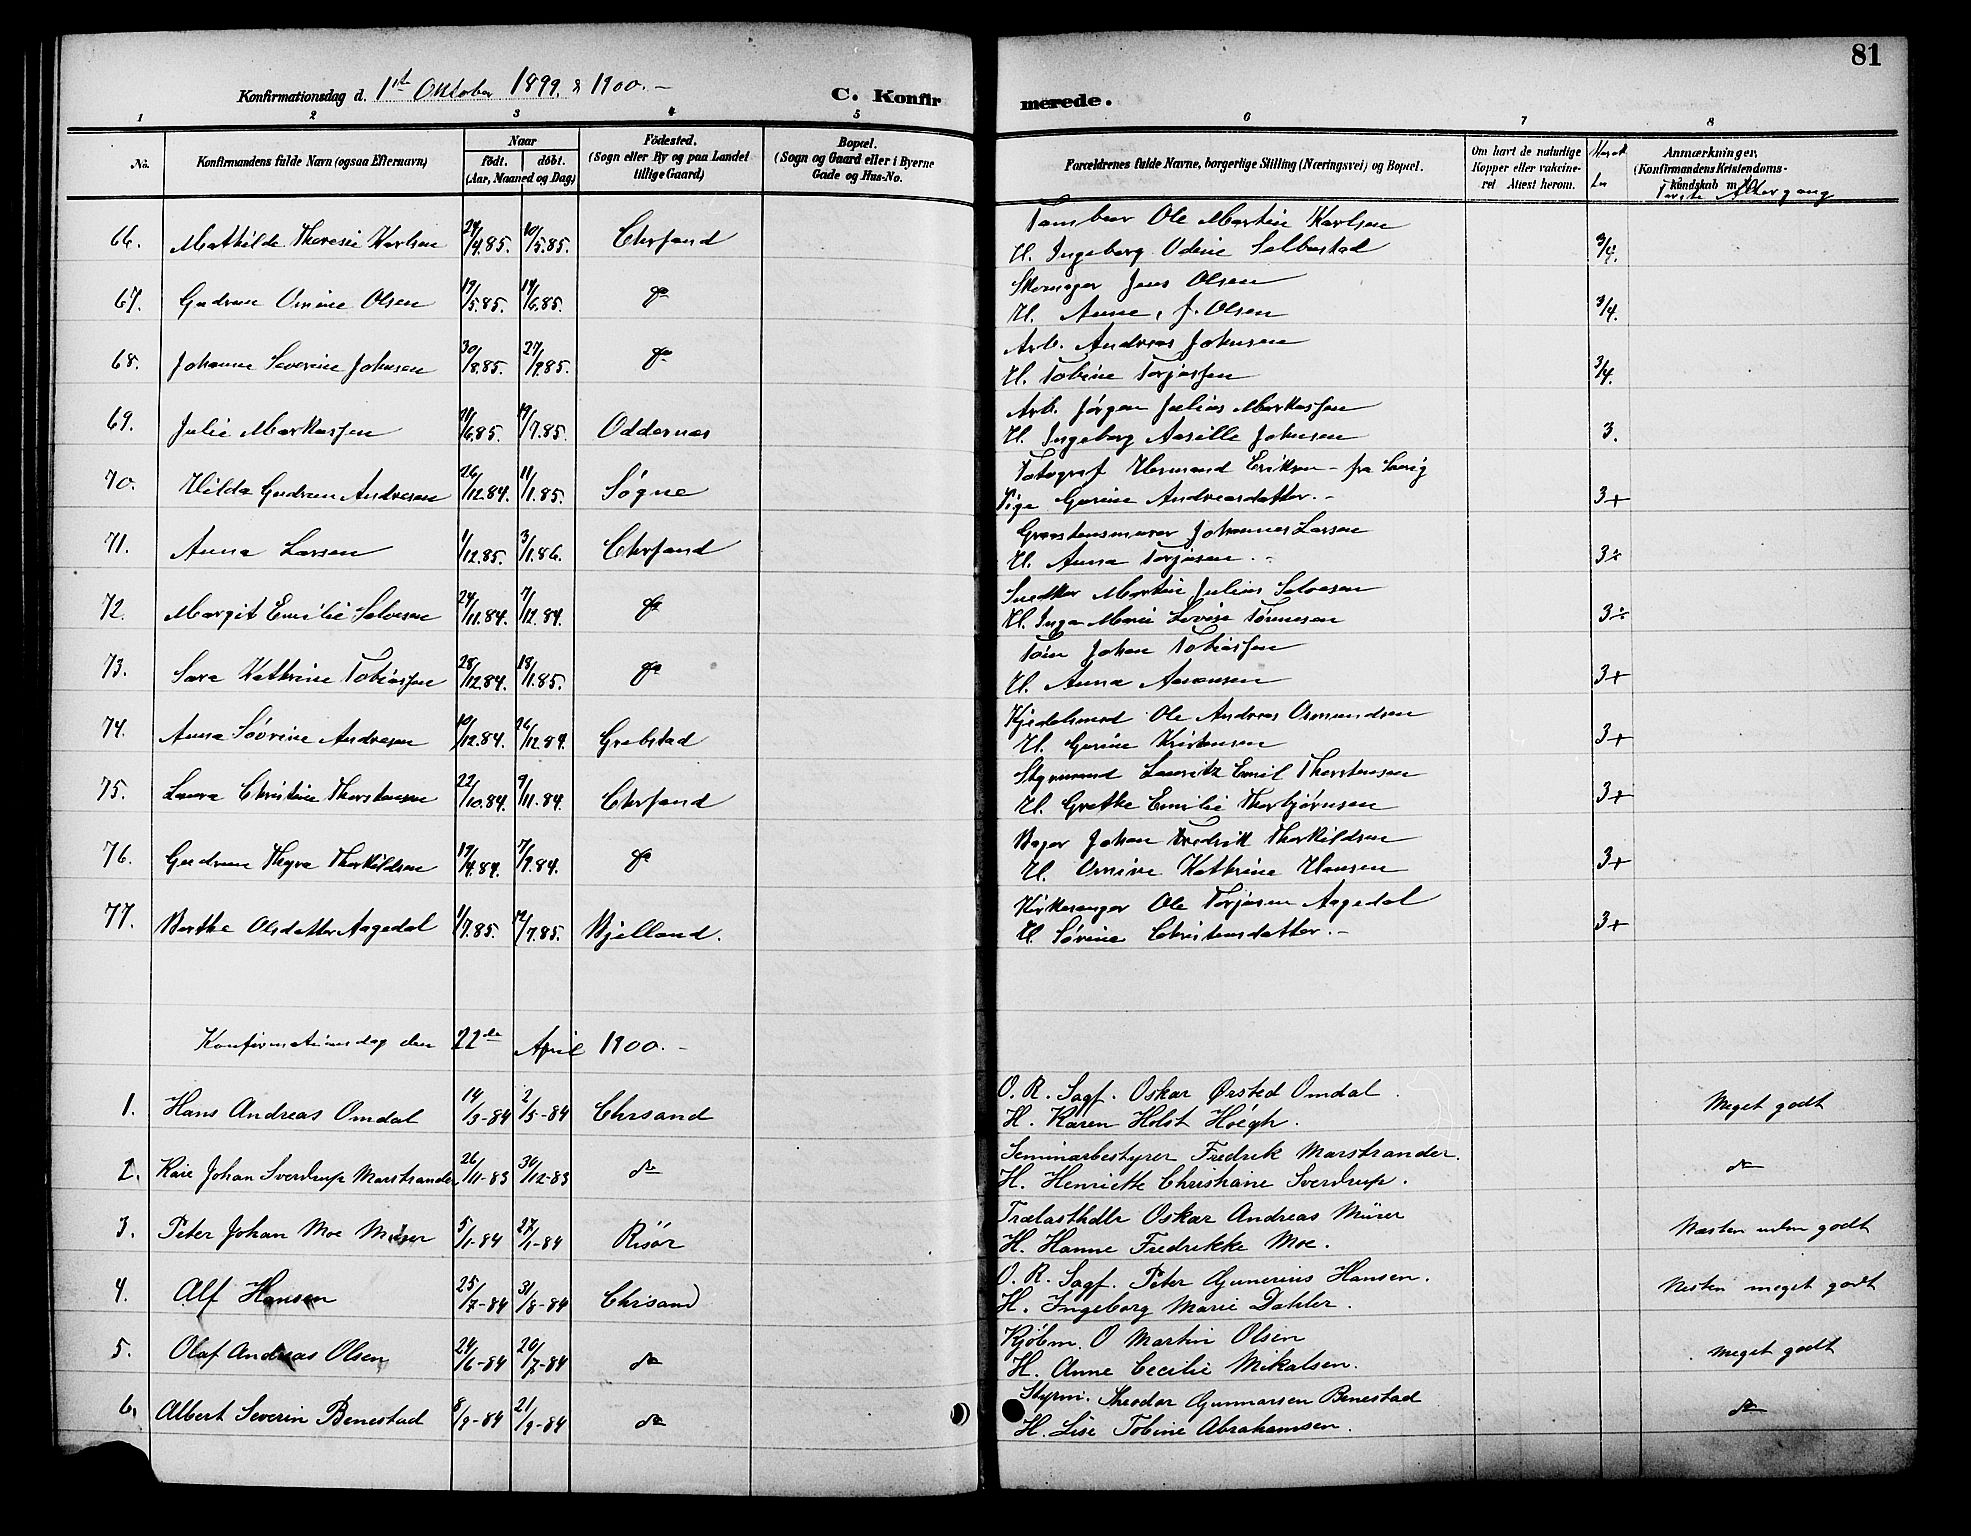 81
Konfirmationsdag d. 1ste Oktober 1899. & 1900. —
C. Konfirmerede.
1 2 3 4 5 6 7 8
No.
Konfirmandens fulde Navn (ogsaa Efternavn)
Naar
födt. döbt.
(Aar, Maaned og Dag)
Födested.
(Sogn eller By og paa Landet
tillige Gaard)
Bopæl.
(Sogn og Gaard eller i Byerne
Gade og Hus-No.
Forældrenes fulde Navne, borgerlige Stilling (Næringsvei) og Bopæl.
Om havt de naturlige
Kopper eller vakcine-
ret Attest herom.
Anmærkninger,
(Konfirmandens Kristendoms-
kundskab m. m.)
Første Altergang
66. Mathilde Theresie Karlsen 24/4.85. 10/5.85. Chrsand
Tambur Ole Martin Karlsen
H. Ingeborg Odine Salbustad 3/4.
67. Gudrun Omine Olsen 19/5.85. 14/6.85. do
Skomager Jens Olsen
H. Anne, J. Olsen 3/4.
68. Johanne Severine Johnsen 30/8.85. 27/9.85. do
Arb. Andreas Johnsen
H. Tobine Torjusen 3/4.
69. Julie Markussen 21/6.85. 19/7.85. Oddernæs
Arb. Jörgen Julius Markussen
H. Ingeborg Aasille Johnsen 3.
70. Hilda Gudrun Andresen 26/12.84. 11/1.85. Søgne
Fotograf Hermand Eriksen — fra Sverig
Pige Gurine Andreasdatter. — 3+
71. Anna Larsen 1/12.85. 3/1.86. Chrsand
Graastensmurer Johannes Larsen
H. Anna Torjusen. — 3÷
72. Margit Emilie Salvesen 24/11.84. 7/12.84. do
Snedker Martin Julius Salvesen
H. Inga Marie Lovise Tönnesen 3÷
73. Sara Kathrine Tobiassen 28/12.84. 18/1.85. do
Töm Johan Tobiassen
H. Anna Aanensen 3+
74. Anna Söverine Andresen 10/12.84. 26/12.84. Grebstad
Kjedelsmed Ole Andreas Osmundsen
H. Gurine Kristensen 3+
75. Laura Christine Thorstensen 22/10.84. 9/11.84. Chrsand
Styrmand Lauritz Emil Thorstensen
H. Grethe Emilie Thorbjörnsen 3+
76. Gudrun Thyra Thorkildsen 19/4.84. 7/9.84. do
Bager Johan Fredrik Thorkildsen
H. Omine Kathrine Hansen 3+
77. Berthe Olsdatter Aagedal 1/7.85. 12/7.85. Bjelland.
Kirkesanger Ole Torjusen Aagedal
H. Sörine Christensdatter. — 3+
Konfirmationsdag den 22de April 1900. —
1. Hans Andreas Omdal 14/3-84 2/5-84 Chrsand
O. R. Sagf. Oskar Ørsted Omdal.
H. Karen Holst Höegh. Meget godt
2. Kåre Johan Sverdrup Marstrander 26/11-83 30/12-83 do
Seminarbestyrer Fredrik Marstrander.
H. Henriette Christiane Sverdrup. do
3. Peter Johan Moe Mürer 5/1-84 27/1-84 Risör
Trælasthdlr Oskar Andreas Mürer
H. Hanne Fredrikke Moe. Næsten udm godt
4. Alf Hansen 25/7-84 31/8-84 Chrsand
O. R. Sagf. Peter Gunerius Hansen.
H. Ingeborg Marie Dahler. Næsten meget godt
5. Olaf Andreas Olsen 24/6-84 20/7-84 do
Kjöbm. O Martin Olsen
H. Anne Cecilie Mikalsen. Meget godt
6. Albert Severin Benestad 8/9-84 21/9-84 do
Styrm. Theodor Gunnarsen Benestad
H. Lise Tobine Abrahamsen. do